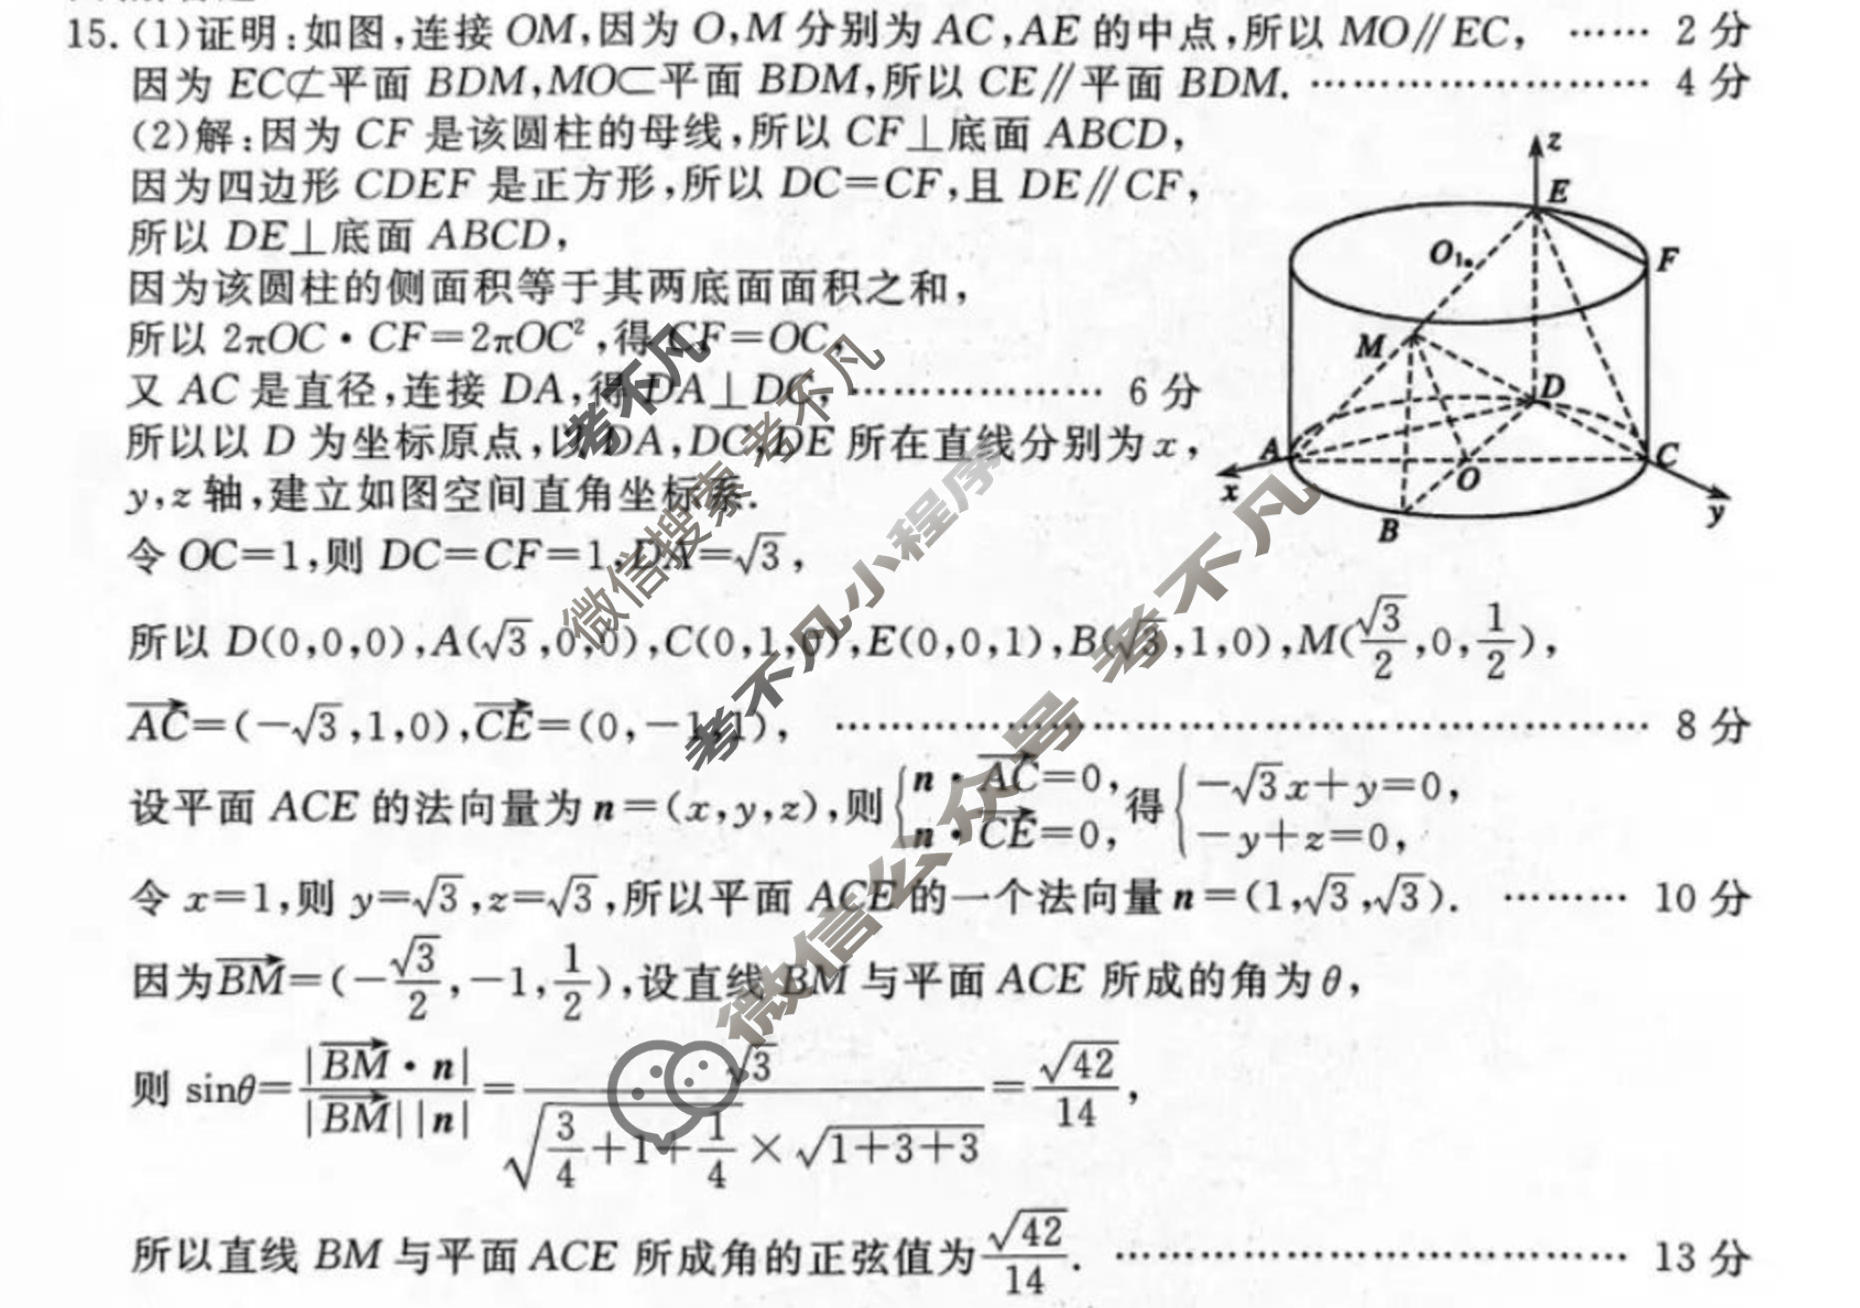 15. (1)证明:如图,连接 OM,因为 O,M 分别为 AC,AE 的中点,所以 MO∥EC, …… 2 分
因为 EC⊄平面 BDM,MO⊂平面 BDM,所以 CE∥平面 BDM. …………………… 4 分
(2)解:因为 CF 是该圆柱的母线,所以 CF⊥底面 ABCD,
因为四边形 CDEF 是正方形,所以 DC=CF,且 DE∥CF,
所以 DE⊥底面 ABCD,
因为该圆柱的侧面积等于其两底面面积之和,
所以 2πOC·CF=2πOC²,得 CF=OC,
又 AC 是直径,连接 DA,得 DA⊥DC, ……………… 6 分
所以以 D 为坐标原点,以 DA,DC,DE 所在直线分别为 x,
y,z 轴,建立如图空间直角坐标系.
令 OC=1,则 DC=CF=1,DA=√3,
所以 D(0,0,0),A(√3,0,0),C(0,1,0),E(0,0,1),B(√3,1,0),M(√3/2,0,1/2),
AC→=(-√3,1,0),CE→=(0,-1,1), …………………………………………… 8 分
设平面 ACE 的法向量为 n=(x,y,z),则{n·AC→=0, n·CE→=0, 得{-√3x+y=0, -y+z=0,
令 x=1,则 y=√3,z=√3,所以平面 ACE 的一个法向量 n=(1,√3,√3). ……… 10 分
因为BM→=(-√3/2,-1,1/2),设直线 BM 与平面 ACE 所成的角为 θ,
则 sinθ=|BM→·n|/(|BM→||n|)=√3/(√(3/4+1+1/4)×√(1+3+3))=√42/14,
所以直线 BM 与平面 ACE 所成角的正弦值为√42/14. …………………………… 13 分
z
E
O₁
F
M
D
A
C
x
O
y
B
考不凡
微信搜索 考不凡
考不凡小程序
微信公众号 考不凡